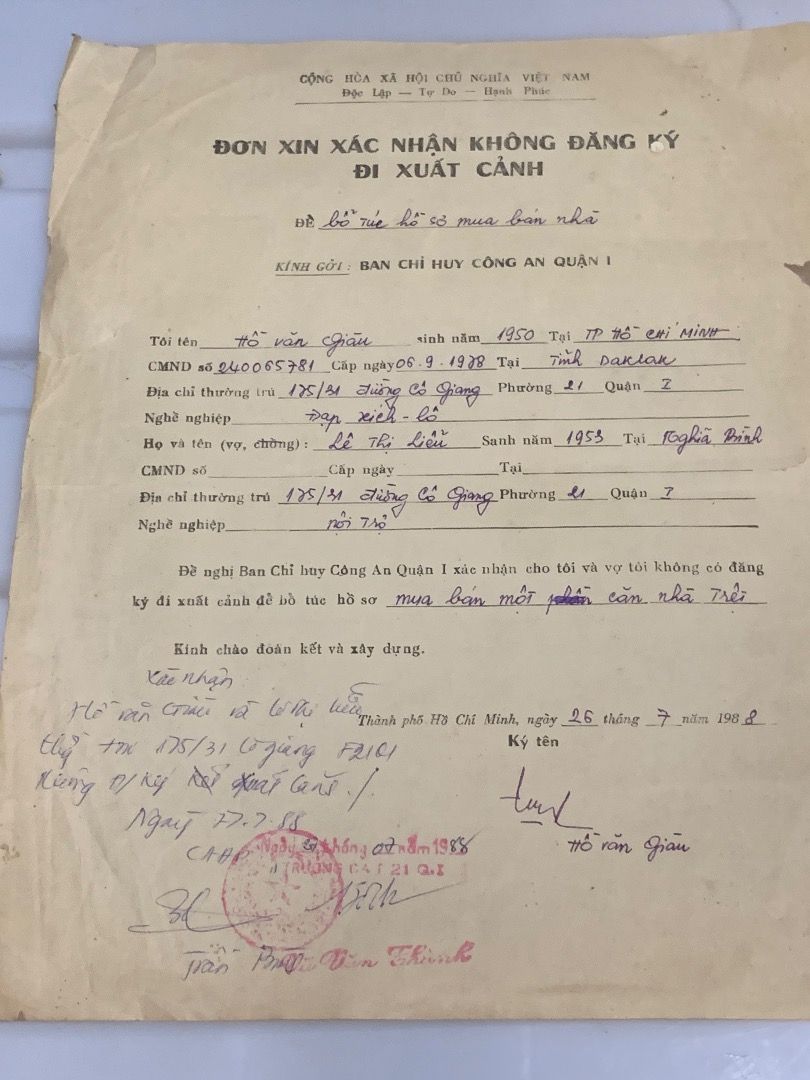 CỘNG HÒA XÃ HỘI CHỦ NGHĨA VIỆT NAM
Độc Lập — Tự Do — Hạnh Phúc
ĐƠN XIN XÁC NHẬN KHÔNG ĐĂNG KÝ
ĐI XUẤT CẢNH
ĐỂ bổ túc hồ sơ mua bán nhà
KÍNH GỞI : BAN CHỈ HUY CÔNG AN QUẬN I
Tôi tên Hồ văn Giàu sinh năm 1950 Tại TP Hồ CHÍ MINH
CMND số 240065781 Cấp ngày 06.9.1978 Tại Tỉnh Daklak
Địa chỉ thường trú 175/31 đường Cô Giang Phường 21 Quận I
Nghề nghiệp Đạp xích-lô
Họ và tên (vợ, chồng) : Lê Thị Liễu Sanh năm 1953 Tại Nghĩa Bình
CMND số Cấp ngày Tại
Địa chỉ thường trú 175/31 đường Cô Giang Phường 21 Quận I
Nghề nghiệp nội trợ
Đề nghị Ban Chỉ huy Công An Quận I xác nhận cho tôi và vợ tôi không có đăng
ký đi xuất cảnh để bổ túc hồ sơ mua bán một phần căn nhà trệt
Kính chào đoàn kết và xây dựng.
Xác nhận
Hồ văn Giàu và Lê thị Liễu
Thành phố Hồ Chí Minh, ngày 26 tháng 7 năm 1988
175/31 Cô giang F21Q1
Ký tên
Không Đ/Ký xuất cảnh./.
Ngày 27.7.88
Hồ văn Giàu
CAF
Ngày 27 tháng 07 năm 1988
TRƯỞNG CA F 21 Q.I
Trần
Văn Thành